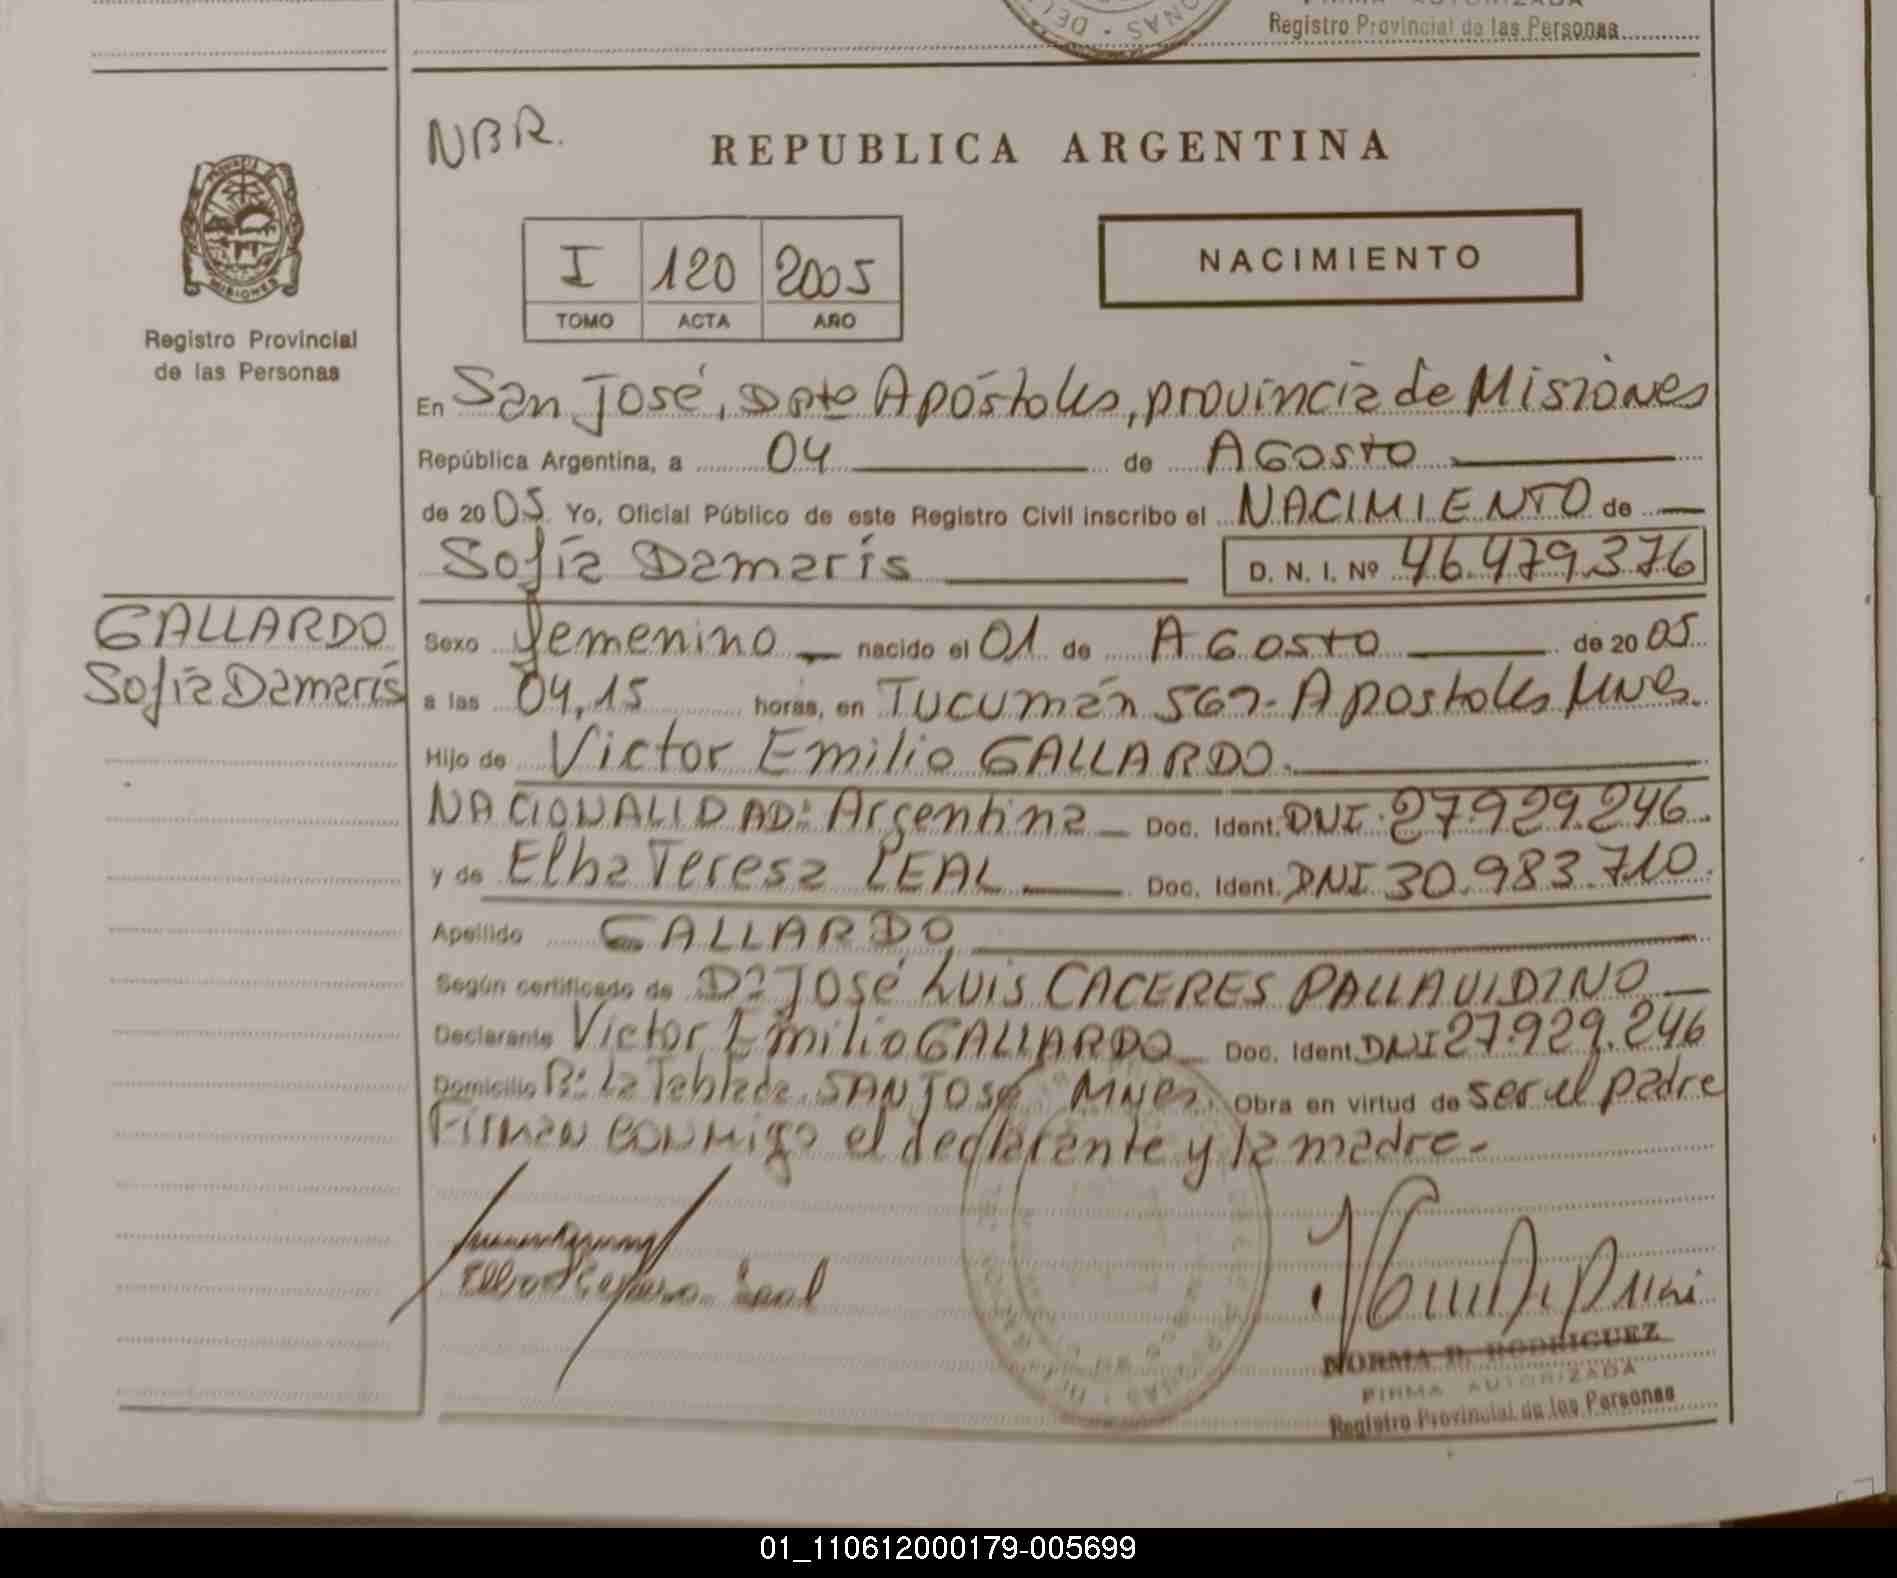 Registro Provincial de las Personas
NBR.
REPUBLICA ARGENTINA
MISIONES
Registro Provincial
de las Personas
I 120 2005
TOMO ACTA AÑO
NACIMIENTO
En San José, Dpto Apóstoles, provincia de Misiones
República Argentina, a 04 de AGosto
de 20 05 Yo, Oficial Público de este Registro Civil inscribo el NACIMIENTO de
Sofía Damaris D. N. I. Nº 46.479.376
GALLARDO
Sofía Damaris
Sexo femenino nacido el 01 de AGosto de 20 05
a las 04,15 horas, en Tucumán 567- Apostoles Mnes.
Hijo de Victor Emilio GALLARDO.
NACIONALIDAD: Argentina Doc. Ident. DNI 27.929.246.
y de Elba Teresa LEAL Doc. Ident. DNI 30.983.710.
Apellido GALLARDO
Según certificado de Dº José Luis CACERES PALLAVIDINO
Declarante Victor Emilio GALLARDO Doc. Ident. DNI 27.929.246
Domicilio Bº La Tablada. SAN José Mnes. Obra en virtud de ser el padre
Firman conmigo el declarante y la madre.-
NORMA B. RODRIGUEZ
FIRMA AUTORIZADA
Registro Provincial de las Personas
01_110612000179-005699